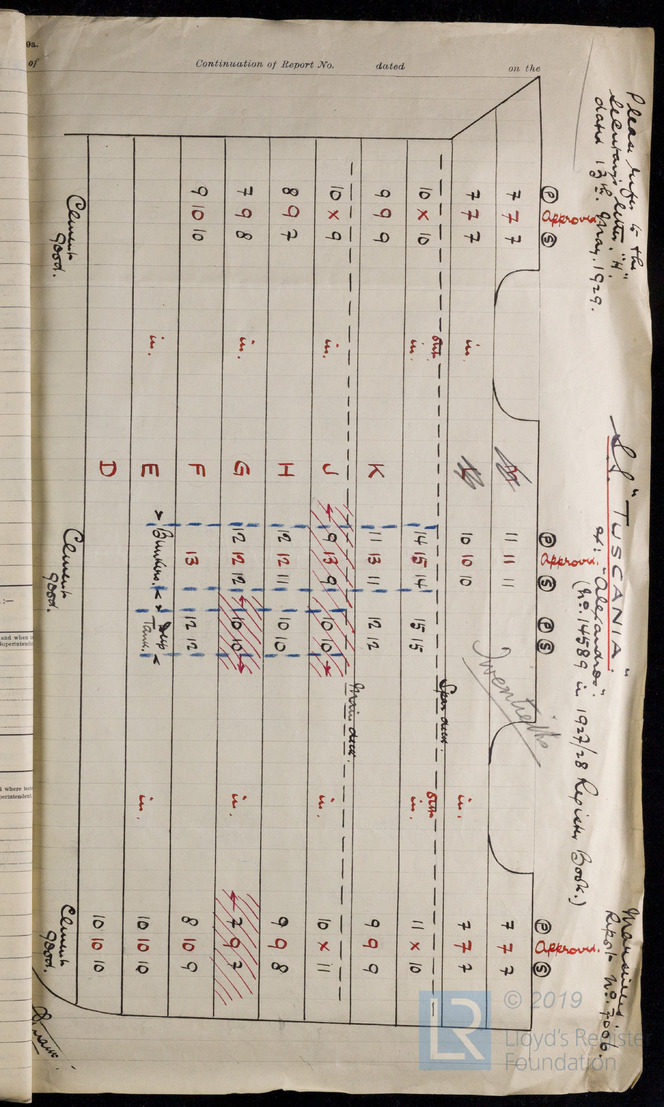 9a.
of
Continuation of Report No. dated on the
Please refer to the
Secretary's letter "H"
dated 13th May. 1929.
S.S. "TUSCANIA"
ex: "Alexandros"
(No. 14589 in 1927/28 Register Book.)
Marseilles.
Report No. 7006.
P Approved. S
P Approved. S P S
P Approved. S
7 7 7
11 11 11
7 7 7
7 7 7
in.
10 10 10
in.
7 7 7
Twentieths
Spar deck.
10 x 10
out.
in.
14 15 14
15 15
out
in.
11 x 10
9 9 9
K
11 13 11
12 12
9 9 9
Main deck.
10 x 9
in.
J
9 13 9
10 10
in.
10 x 11
8 9 7
H
12 12 11
10 10
9 9 8
7 9 8
in.
G
12 12 12
10 10
in.
7 9 7
9 10 10
F
13
12 12
8 10 9
in.
E
Bunkers.
Deep
Tank.
in.
10 10 10
D
10 10 10
Cement
good.
Cement
good.
Cement
good.
:—
and when
Superintendent
d where
Superintendent
LR
© 2019
Lloyd's Register
Foundation